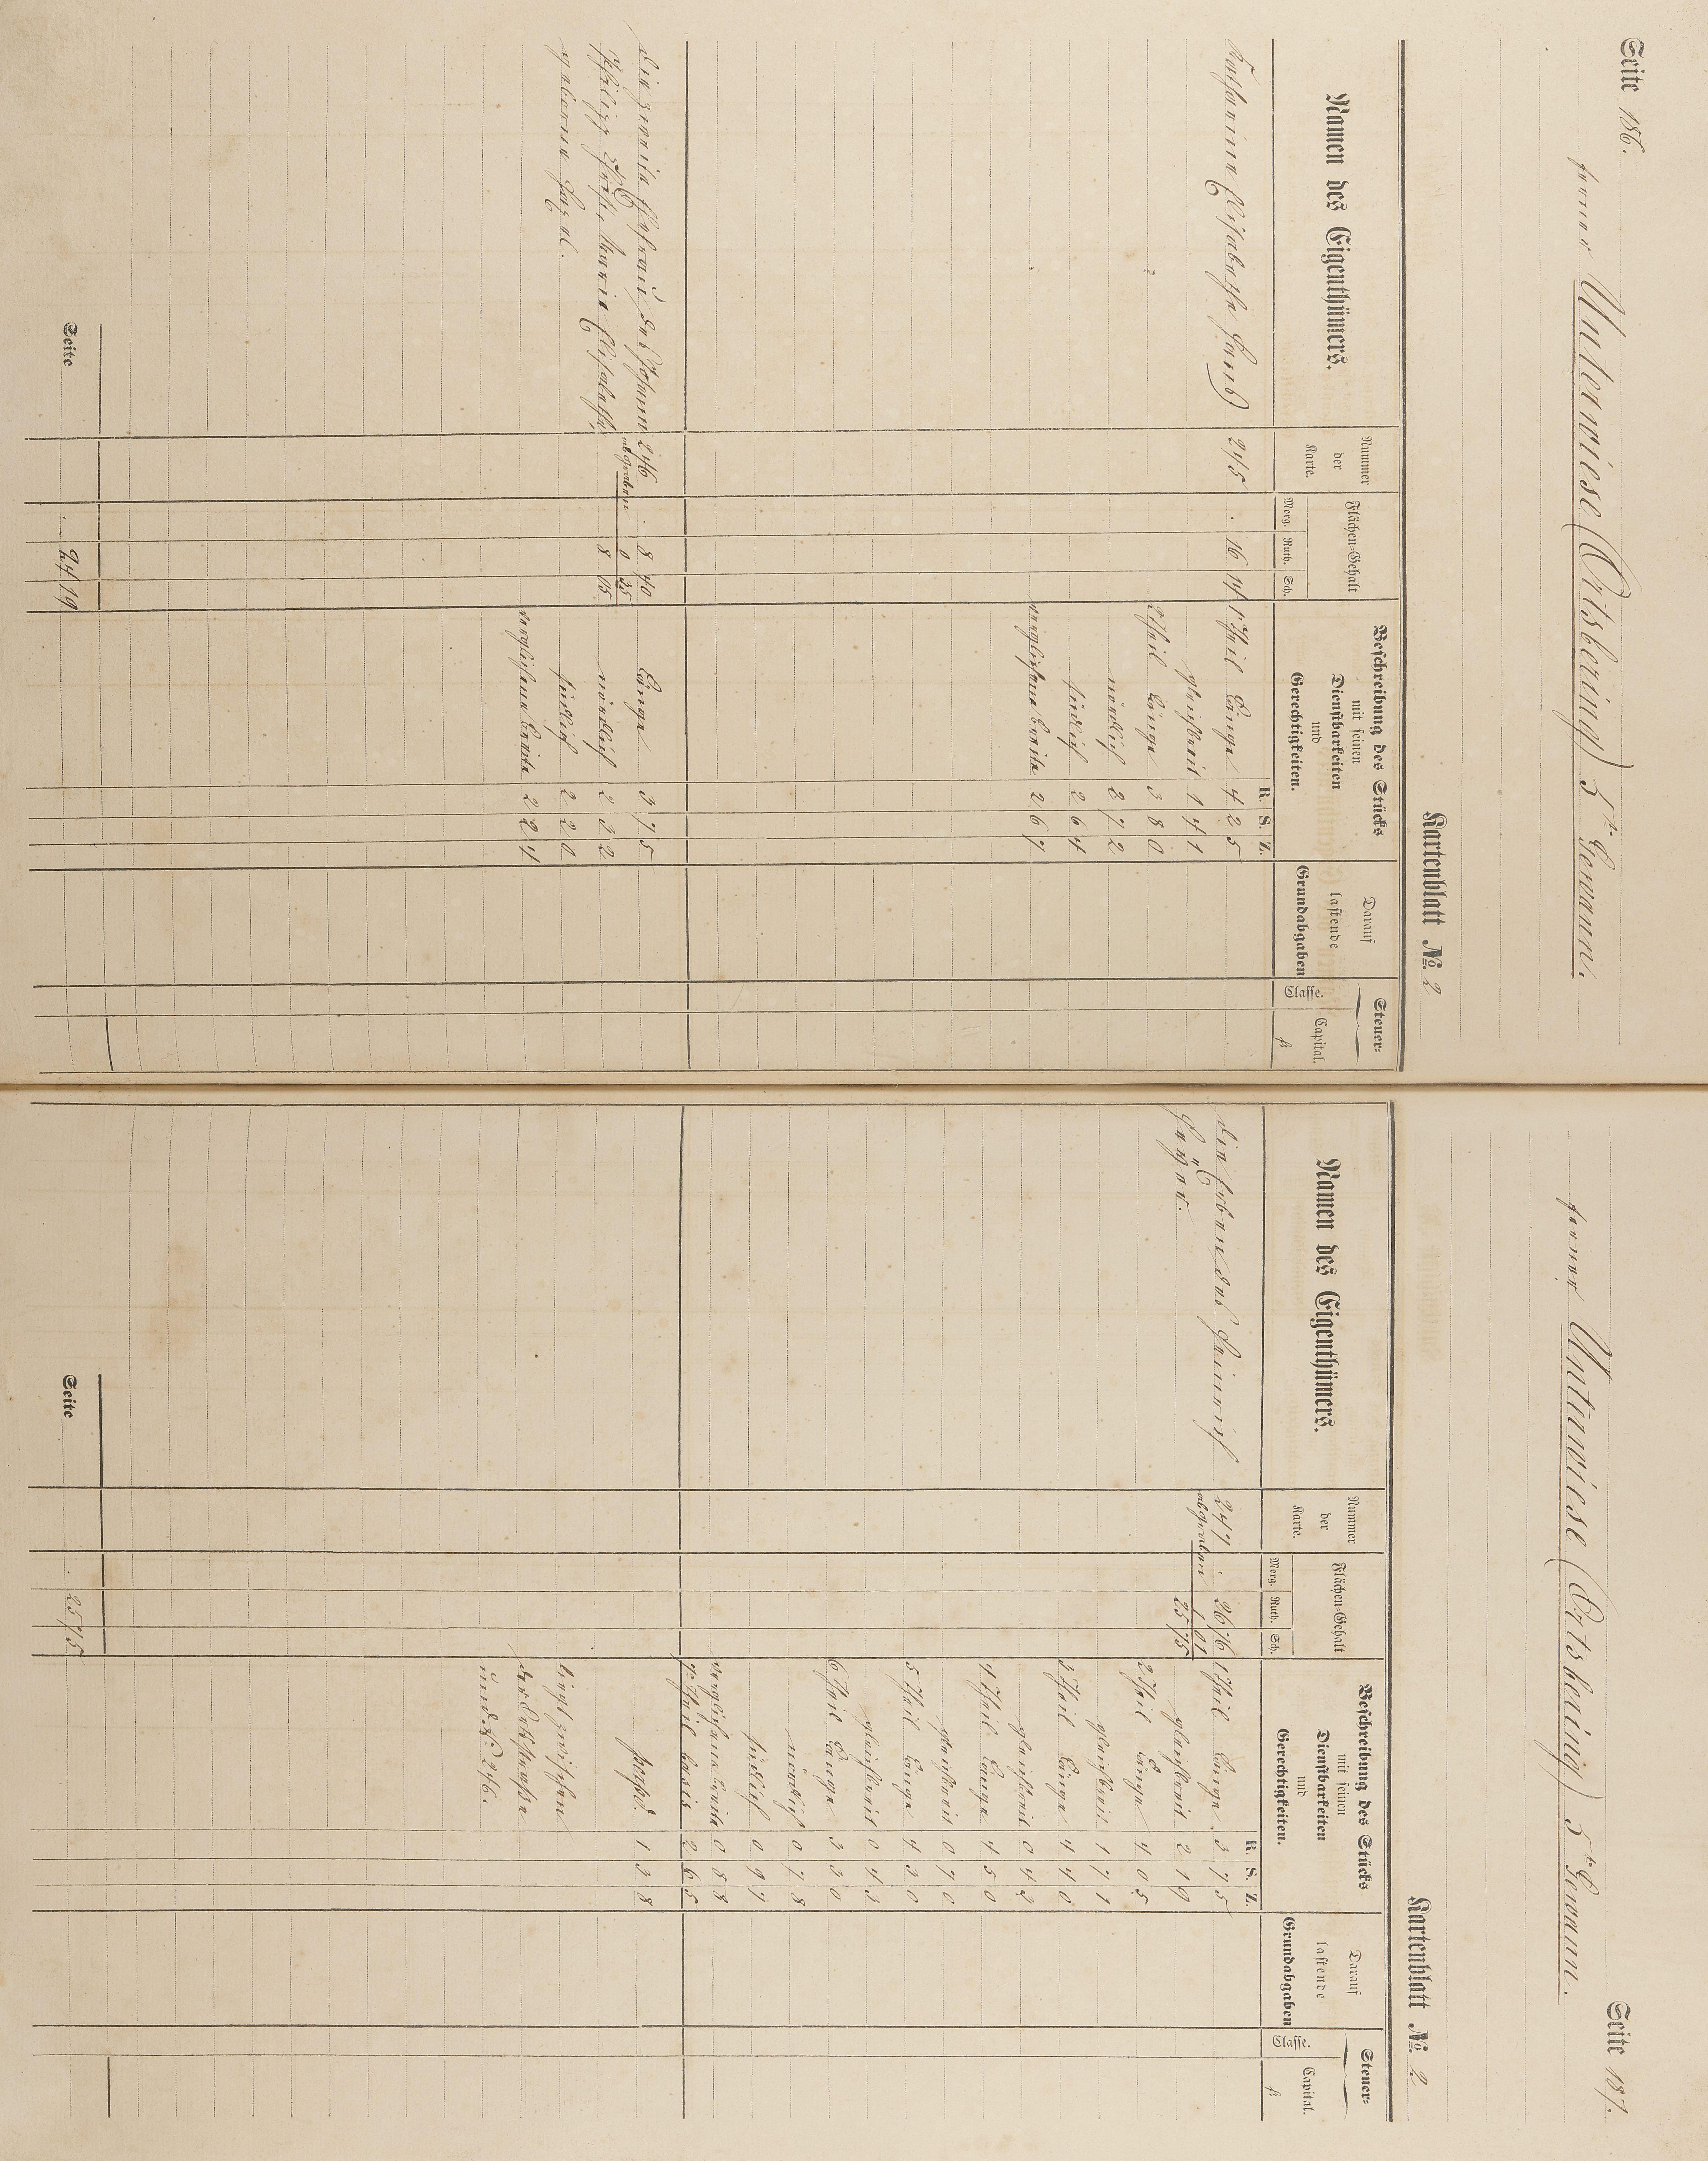 Seite 186.
ferner Unterwiese (Ortsbering) 5te Gewann.
Kartenblatt No. 2
Namen des Eigenthümers.
Nummer der Karte.
Flächen-Gehalt
Morg. Ruth. Sch.
Beschreibung des Stücks
mit seinen
Dienstbarkeiten
und
Gerechtigkeiten.
R. S. Z.
Darauf
lastende
Grundabgaben
Steuer-
Classe. Capital.
fl
Katharina Elisabetha 245 . 16 14 1 Theil Länge 4 2 5
gleichbreit 1 4 1
2 Theil Länge 3 8 0
nördlich 2 7 2
südlich 2 6 4
verglichene Breite 2 6 7
die zweite Ehefrau des Johann 246 . 8 40 Länge 3 7 5
Philipp Maria Elisabetha, abgeschrieben 0 35
8 05 nördlich 2 3 2
geborene südlich 2 2 0
verglichene Breite 2 2 4
Seite . 24 19
Seite 187.
ferner Unterwiese (Ortsbering) 5te Gewann.
Kartenblatt No. 2
Namen des Eigenthümers.
Nummer der Karte.
Flächen-Gehalt
Morg. Ruth. Sch.
Beschreibung des Stücks
mit seinen
Dienstbarkeiten
und
Gerechtigkeiten.
R. S. Z.
Darauf
lastende
Grundabgaben
Steuer-
Classe. Capital.
fl
die Erben des Heinrich 247 . 26 76 1 Theil Länge 3 7 5
1 01
25 75 gleichbreit 2 1 9
2 Theil Länge 4 0 5
gleichbreit 1 7 1
3 Theil Länge 4 4 0
gleichbreit 0 4 2
4 Theil Länge 4 5 0
gleichbreit 0 7 0
5 Theil Länge 4 3 0
gleichbreit 0 4 3
6 Theil Länge 3 3 0
nördlich 0 7 8
südlich 0 9 7
verglichene Breite 0 8 8
7 Theil Basis 2 6 5
Perpd. 1 3 8
liegt zwischen
der Ortsstrasse
und No. 246.
Seite . 25 75